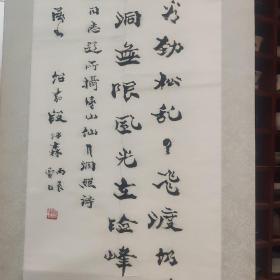 看劲松乱云飛渡仍
洞無限風光在險峰
同志题所攝庐山仙人洞照诗
丙辰